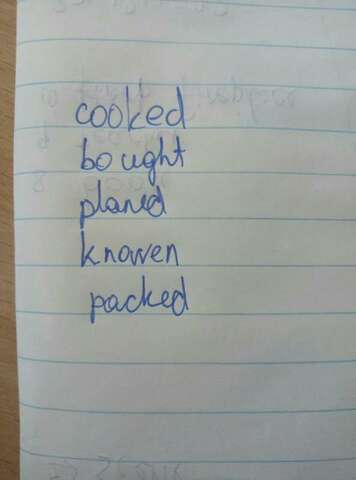 cooked
bought
planed
knowen
packed